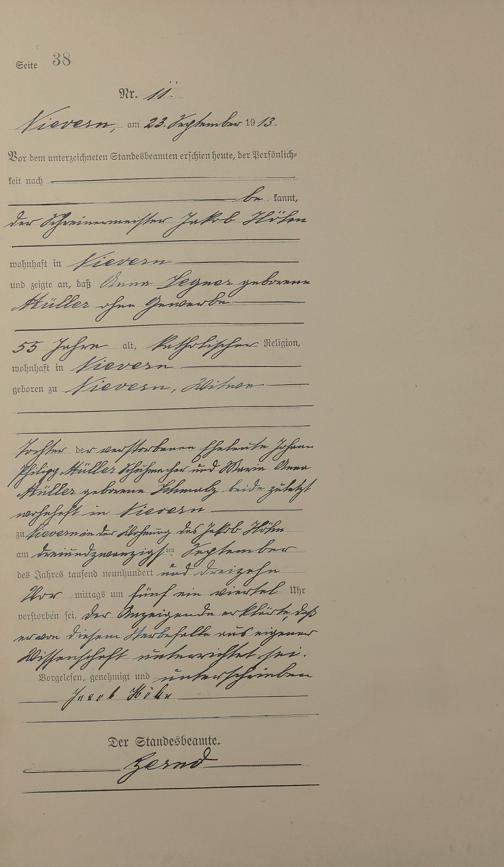 Seite 38
Nr. 11.
Nievern, am 23. September 1913.
Vor dem unterzeichneten Standesbeamten erschien heute, der Persönlich-
keit nach
be kannt,
der Schreinermeister Jakob Höhn
wohnhaft in Nievern
und zeigte an, daß Anna Legner geborene
Müller ohne Gewerbe
55 Jahre alt, katholischer Religion,
wohnhaft in Nievern
geboren zu Nievern, Witwe
Tochter der verstorbenen Eheleute Johann
Philipp Müller Schuhmacher und Maria Anna
Müller geborene Schmalz beide zuletzt
wohnhaft in Nievern
zu Nievern in der Wohnung des Jakob Höhn
am dreiundzwanzigsten September
des Jahres tausend neunhundert und dreizehn
Vor mittags um fünf ein viertel Uhr
verstorben sei. Der Anzeigende erklärte, daß
er von diesem Sterbefalle aus eigener
Wissenschaft unterrichtet sei.
Vorgelesen, genehmigt und unterschrieben
Jacob Höhn
Der Standesbeamte.